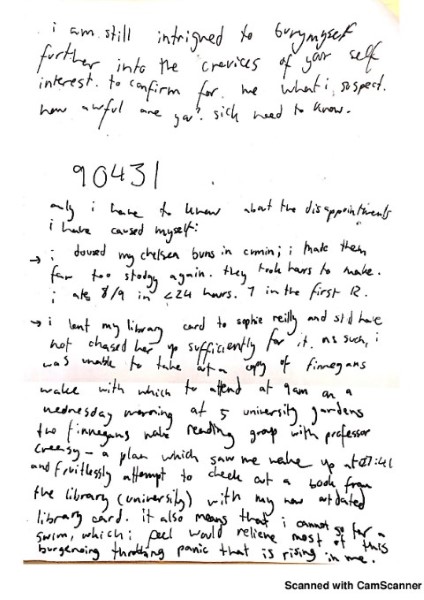 i am still intrigued to bury myself
further into the crevices of your self
interest. to confirm for me what i suspect.
how awful are you? sick need to know.
90431
only i have to know about the disappointments
i have caused myself:
→ i doused my chelsea buns in cumin; i make them
far too stodgy again. they took hours to make.
i ate 8/9 in <24 hours. 7 in the first 12.
→ i lent my library card to sophie reilly and still have
not chased her up sufficiently for it. as such, i
was unable to take out a copy of finnegans
wake with which to attend at 9am on a
wednesday morning at 5 university gardens
the finnegans wake reading group with professor
creasy - a plan which saw me wake up at 07:41
and fruitlessly attempt to check out a book from
the library (university) with my now outdated
library card. it also means that i cannot go for a
swim, which i feel would relieve most of this
burgeoning throbbing panic that is rising in me.
Scanned with CamScanner